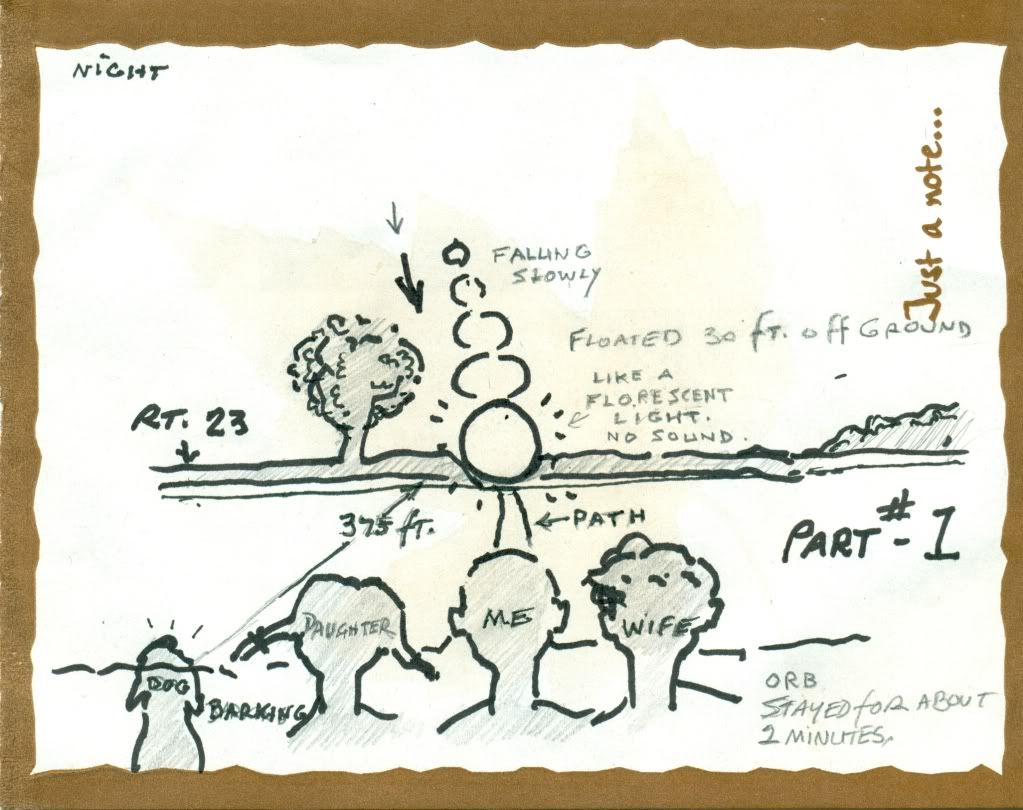 NIGHT
Just a note...
FALLING
SLOWLY
FLOATED 30 ft. off GROUND
LIKE A
FLORESCENT
LIGHT.
NO SOUND.
RT. 23
375 ft.
PATH
PART # - 1
DAUGHTER
ME
WIFE
DOG
BARKING
ORB
STAYED foR ABOUT
2 MINUTES.